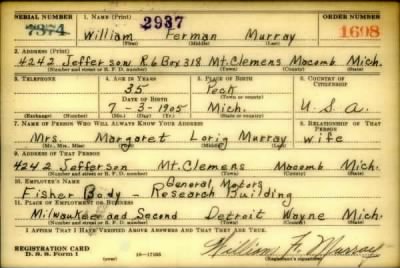 SERIAL NUMBER 1. NAME (Print) ORDER NUMBER
2937
7374 William Ferman Murray 1698
(First) (Middle) (Last)
2. ADDRESS (Print)
4242 Jefferson R6 Box 318 Mt. Clemens Macomb Mich.
(Number and street or R. F. D. number) (Town) (County) (State)
3. TELEPHONE 4. AGE IN YEARS 5. PLACE OF BIRTH 6. COUNTRY OF CITIZENSHIP
35 Peck
DATE OF BIRTH (Town or county)
7-3-1905 Mich. U.S.A.
(Exchange) (Number) (Mo.) (Day) (Yr.) (State or country)
7. NAME OF PERSON WHO WILL ALWAYS KNOW YOUR ADDRESS 8. RELATIONSHIP OF THAT PERSON
Mrs. Margaret Murray wife
(Mr., Mrs., Miss) (First) (Middle) (Last)
9. ADDRESS OF THAT PERSON
4242 Jefferson Mt. Clemens Macomb Mich.
(Number and street or R. F. D. number) (Town) (County) (State)
10. EMPLOYER'S NAME General Motors
Fisher Body - Research Building
11. PLACE OF EMPLOYMENT OR BUSINESS
Milwaukee and Second Detroit Wayne Mich.
(Number and street or R. F. D. number) (Town) (County) (State)
I AFFIRM THAT I HAVE VERIFIED ABOVE ANSWERS AND THAT THEY ARE TRUE.
REGISTRATION CARD
D. S. S. Form 1 (over) 16-17105 William F. Murray
(Registrant's signature)